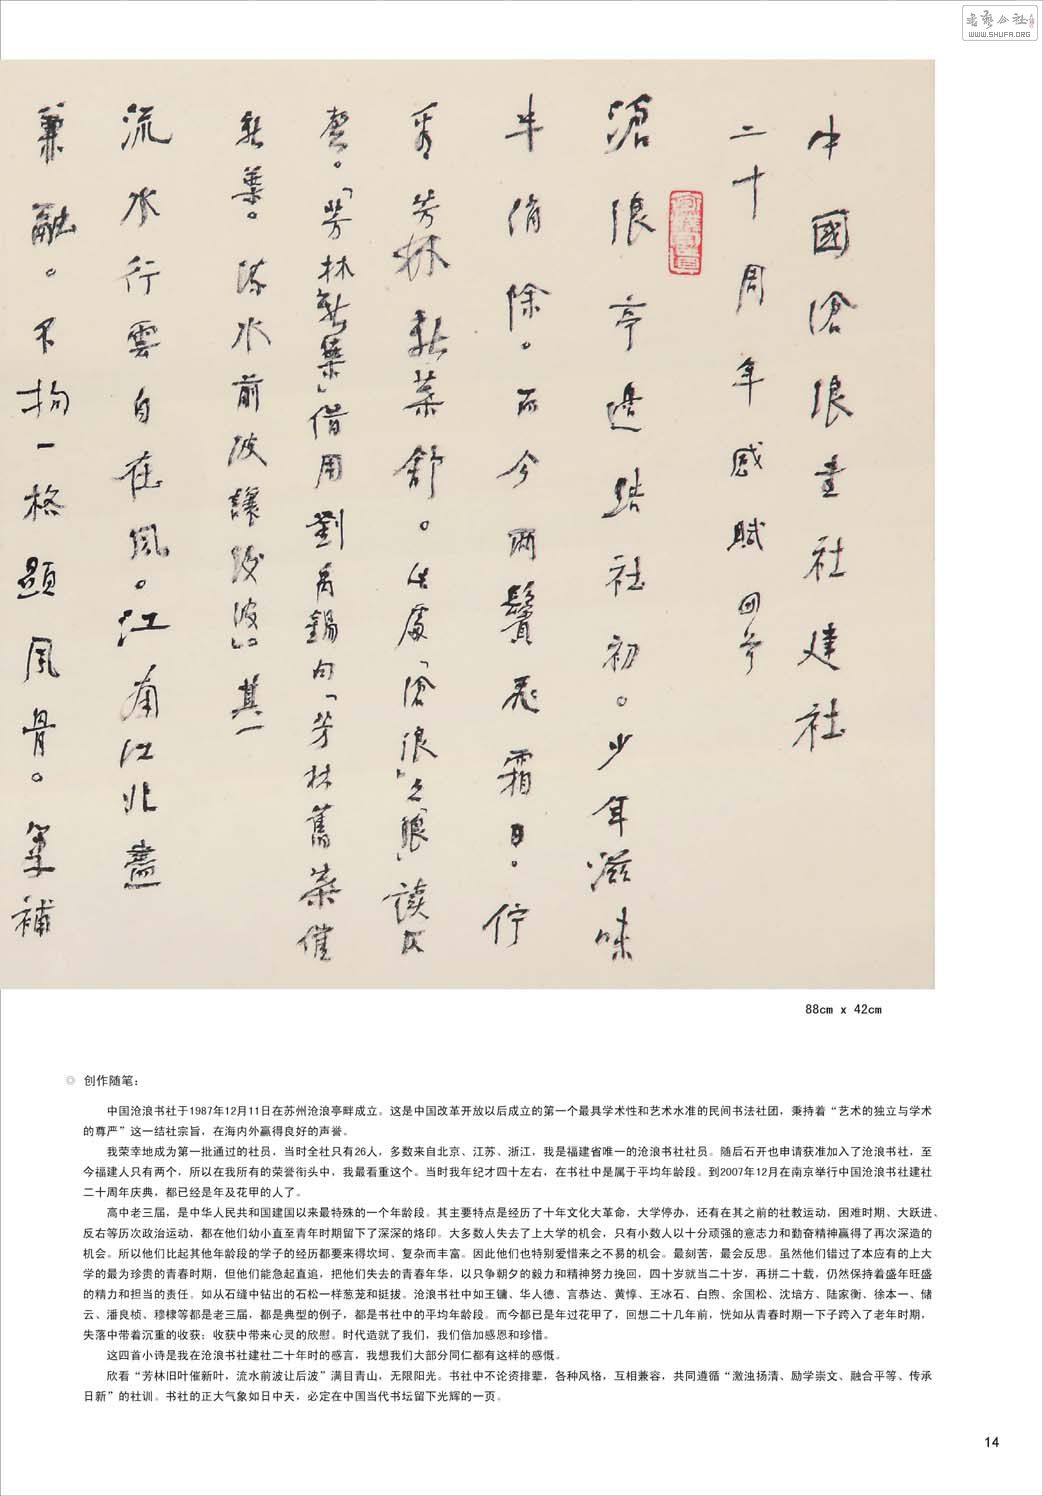 書藝公社
WWW.SHUFA.ORG
中國滄浪書社建社
二十周年感賦四首
滄浪亭邊結社初。少年滋味
半消除。而今兩鬢飛霜日。佇
看芳林新葉舒。此處「滄浪」之「浪」讀仄
聲。「芳林新葉」借用劉禹錫句「芳林舊葉催
新葉。流水前波讓後波」。其一
流水行雲自在風。江南江北盡
兼融。不拘一格顯風骨。氣補
88cm x 42cm
◎ 创作随笔：
中国沧浪书社于1987年12月11日在苏州沧浪亭畔成立。这是中国改革开放以后成立的第一个最具学术性和艺术水准的民间书法社团，秉持着“艺术的独立与学术
的尊严”这一结社宗旨，在海内外赢得良好的声誉。
我荣幸地成为第一批通过的社员，当时全社只有26人，多数来自北京、江苏、浙江，我是福建省唯一的沧浪书社社员。随后石开也申请获准加入了沧浪书社，至
今福建人只有两个，所以在我所有的荣誉衔头中，我最看重这个。当时我年纪才四十左右，在书社中是属于平均年龄段。到2007年12月在南京举行中国沧浪书社建社
二十周年庆典，都已经是年及花甲的人了。
高中老三届，是中华人民共和国建国以来最特殊的一个年龄段。其主要特点是经历了十年文化大革命，大学停办，还有在其之前的社教运动，困难时期、大跃进、
反右等历次政治运动，都在他们幼小直至青年时期留下了深深的烙印。大多数人失去了上大学的机会，只有小数人以十分顽强的意志力和勤奋精神赢得了再次深造的
机会。所以他们比起其他年龄段的学子的经历都要来得坎坷、复杂而丰富。因此他们也特别爱惜来之不易的机会。最刻苦，最会反思。虽然他们错过了本应有的上大
学的最为珍贵的青春时期，但他们能急起直追，把他们失去的青春年华，以只争朝夕的毅力和精神努力挽回，四十岁就当二十岁，再拼二十载，仍然保持着盛年旺盛
的精力和担当的责任。如从石缝中钻出的石松一样葱茏和挺拔。沧浪书社中如王镛、华人德、言恭达、黄惇、王冰石、白煦、余国松、沈培方、陆家衡、徐本一、储
云、潘良桢、穆棣等都是老三届，都是典型的例子，都是书社中的平均年龄段。而今都已是年过花甲了，回想二十几年前，恍如从青春时期一下子跨入了老年时期，
失落中带着沉重的收获；收获中带来心灵的欣慰。时代造就了我们，我们倍加感恩和珍惜。
这四首小诗是我在沧浪书社建社二十年时的感言，我想我们大部分同仁都有这样的感慨。
欣看“芳林旧叶催新叶，流水前波让后波”满目青山，无限阳光。书社中不论资排辈，各种风格，互相兼容，共同遵循“激浊扬清、励学崇文、融合平等、传承
日新”的社训。书社的正大气象如日中天，必定在中国当代书坛留下光辉的一页。
14